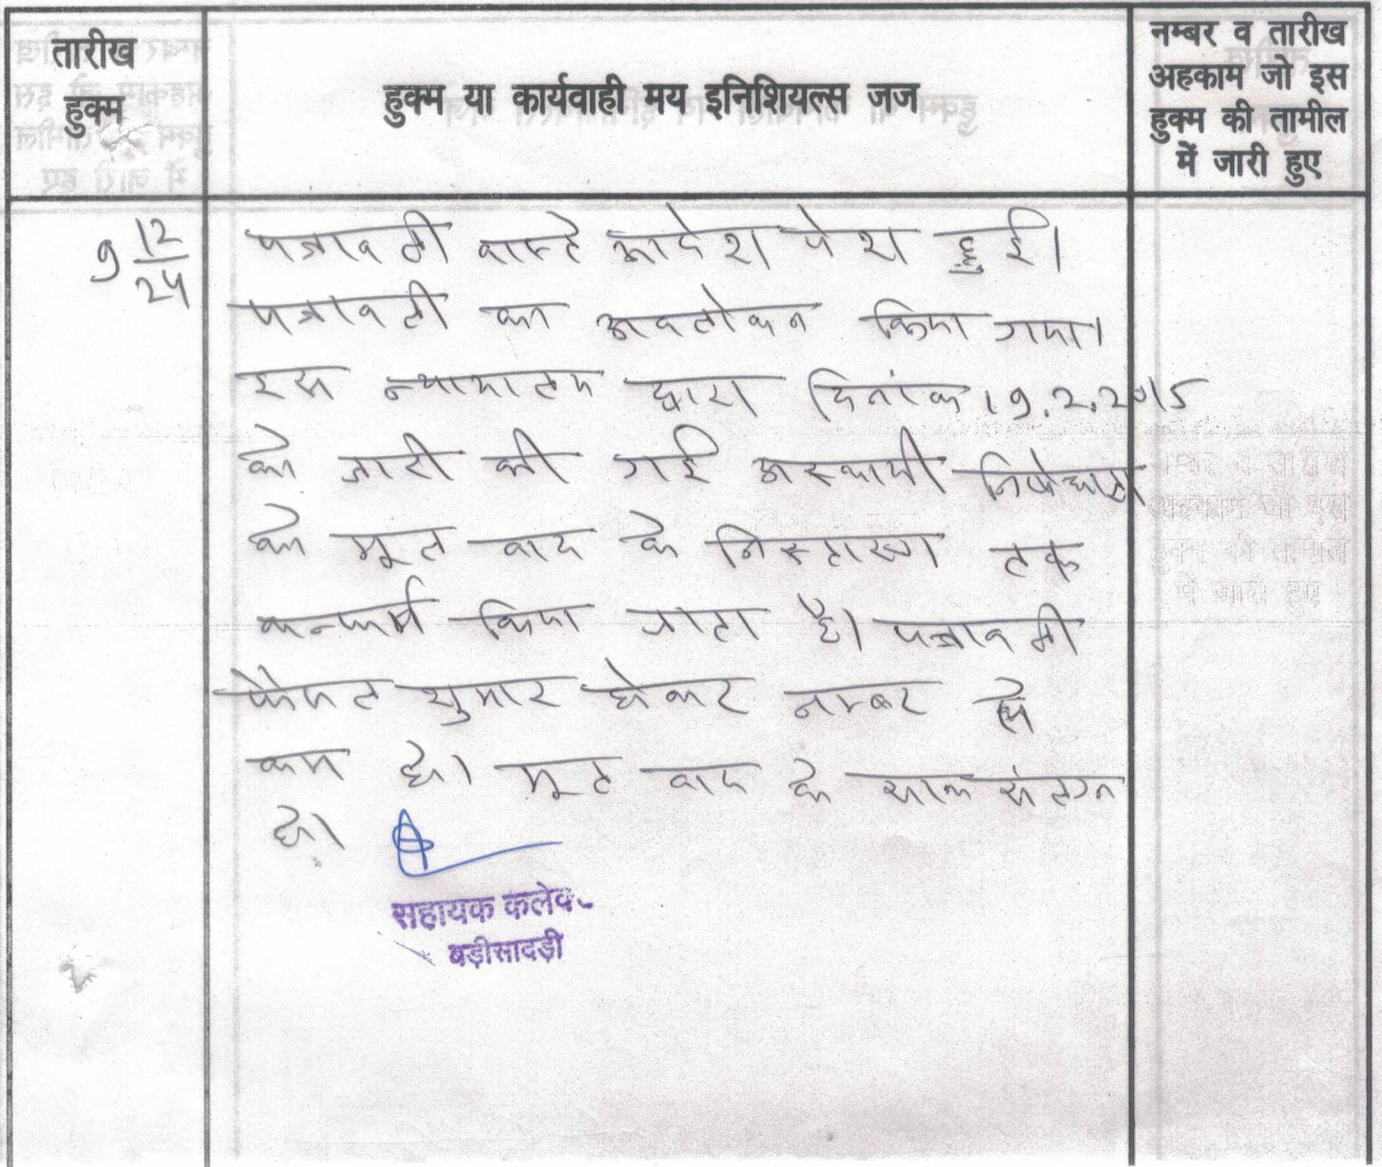 तारीख
हुक्म
हुक्म या कार्यवाही मय इनिशियल्स जज
नम्बर व तारीख
अहकाम जो इस
हुक्म की तामील
में जारी हुए
9 12/24
पत्रावली वास्ते आदेश पेश हुई।
पत्रावली का अवलोकन किया गया।
इस न्यायालय द्वारा दिनांक 19.2.2015
को जारी की गई अस्थायी निषेधाज्ञा
को मूल वाद के निस्तारण तक
कन्फर्म किया जाता है। पत्रावली
फैसल शुमार होकर नम्बर से
कम हो। मूल वाद के साथ संलग्न
हो।
सहायक कलेक्
बड़ीसादड़ी